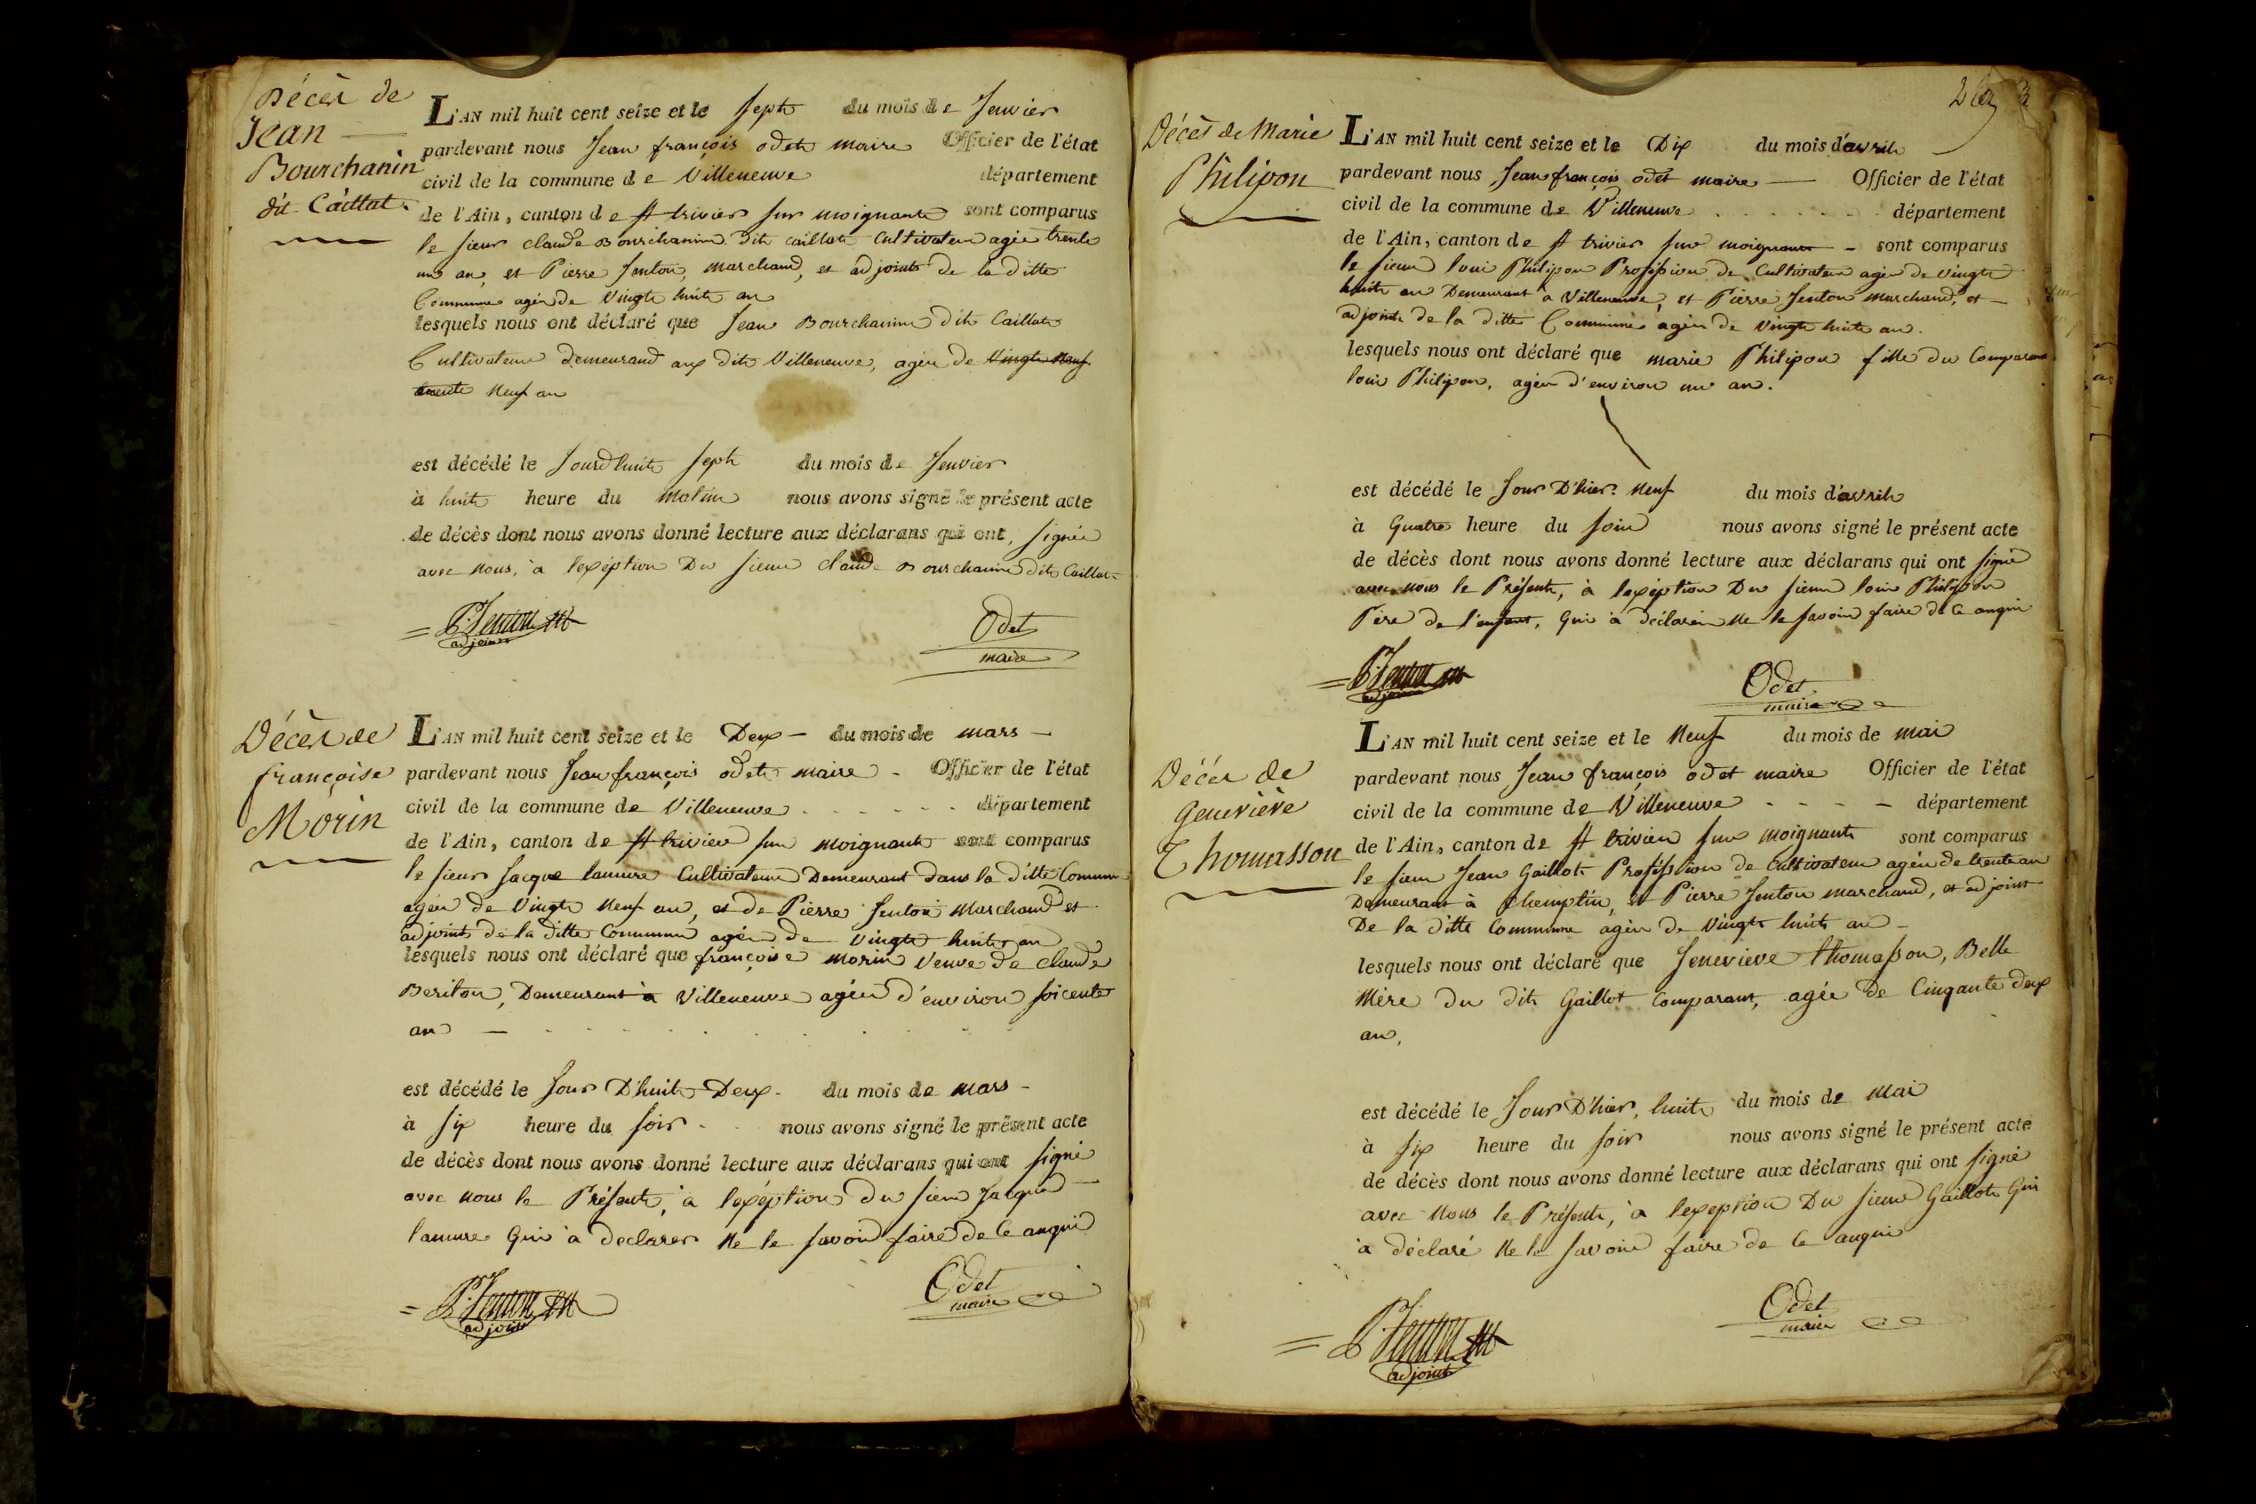 Décès de
Jean
Bourchanin
dit Caillat
L'AN mil huit cent seize et le Sept du mois de Jenvier
pardevant nous Jean françois odet maire Officier de l'état
civil de la commune de Villeneuve département
de l'Ain, canton de St trivier sur moignant sont comparus
le sieur claude Bourchanin dit caillat Cultivateur agée trente
un an, et Pierre Jenton, marchand, et adjoint de la ditte
Commune agée de Vingt huit an
lesquels nous ont déclaré que Jean Bourchanin dit Caillat
Cultivateur demeurand aux dit Villeneuve, agée de Vingt Neuf
trente Neuf an
est décédé le Jourdhuit Sept du mois de Jenvier
à huit heure du matin nous avons signé le présent acte
de décès dont nous avons donné lecture aux déclarans qui ont, signée
avec nous, à l'exéption Du sieur claude Bourchanin dit Caillat
P. Jenton
adjoint
Odet
maire
Décès de
françoise
Morin
L'AN mil huit cent seize et le Deux du mois de mars
pardevant nous Jean françois odet maire Officier de l'état
civil de la commune de Villeneuve département
de l'Ain, canton de St trivier sur moignant sont comparus
le sieur Jacque lamure Cultivateur Demeurant dans la ditte Commune
agée de Vingt Neuf an, et de Pierre Jenton Marchand et
adjoint de la ditte Commune agée de vingt huit an
lesquels nous ont déclaré que françoise morin Veuve de claude
Beriton, Demeurant à Villeneuve agée d'environ soicente
an
est décédé le Jour D'huit Deux du mois de mars
à six heure du soir nous avons signé le présent acte
de décès dont nous avons donné lecture aux déclarans qui ont signé
avec nous le Présent, à l'exéption du sieur Jacque
lamure Qui à declarer Ne le savoir faire de Ce anquie
P. Jenton
adjoint
Odet
maire
Décès de Marie
Philipon
L'AN mil huit cent seize et le Dix du mois d'avril
pardevant nous Jean françois odet maire Officier de l'état
civil de la commune de Villeneuve département
de l'Ain, canton de St trivier sur moignant sont comparus
le sieur loui Philipon Proféssion de Cultivateur agée de vingt
huit an Demeurant à Villeneuve, et Pierre Jenton marchand, et
adjoint de la ditte Commune agée de Vingt huit an.
lesquels nous ont déclaré que marie Philipon fille du Comparant
loui Philipon, agée d'environ un an.
est décédé le Jour D'hier Neuf du mois d'avril
à Quatre heure du soir nous avons signé le présent acte
de décès dont nous avons donné lecture aux déclarans qui ont signé
avec nous le Présent, à l'exéption Du sieur loui Philipon
Père de l'enfant, Qui à déclarée Ne le savoir faire de Ce anquie
P. Jenton
adjoint
Odet
maire
Décès de
Geneviève
Thomasson
L'AN mil huit cent seize et le Neuf du mois de mai
pardevant nous Jean françois odet maire Officier de l'état
civil de la commune de Villeneuve département
de l'Ain, canton de St trivier sur moignant sont comparus
le sieur Jean Gaillot Proféssion de Cultivateur agée de trente an
Demeurant à Chemptin, et Pierre Jenton marchand, et adjoint
De la ditte Commune agée de Vingt huit an
lesquels nous ont déclaré que Jenevieve thomasson, Belle
Mère du dit Gaillot Comparant, agée de Cinqante deux
an,
est décédé le Jour D'hier, huit du mois de mai
à six heure du soir nous avons signé le présent acte
de décès dont nous avons donné lecture aux déclarans qui ont signé
avec nous le Présent, à l'exéption Du sieur Gaillot Qui
à déclaré Ne le savoir faire de Ce anquie
P. Jenton
adjoint
Odet
maire